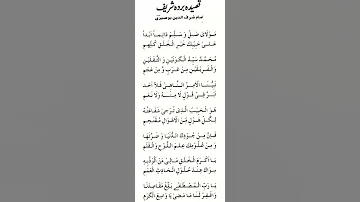 قصیدہ بردہ شریف
امام شرف الدین بوصیری
مَوْلَايَ صَلِّ وَ سَلِّمْ دَائِمًا أَبَدًا
عَلٰى حَبِيْبِكَ خَيْرِ الْخَلْقِ كُلِّهِمِ
مُحَمَّدٌ سَيِّدُ الْكَوْنَيْنِ وَ الثَّقَلَيْنِ
وَ الْفَرِيْقَيْنِ مِنْ عُرْبٍ وَّ مِنْ عَجَمِ
نَبِيُّنَا الْآمِرُ النَّاهِيْ فَلَا أَحَدَ
أَبَرَّ فِيْ قَوْلِ لَا مِنْهُ وَلَا نَعَمِ
هُوَ الْحَبِيْبُ الَّذِيْ تُرْجٰى شَفَاعَتُهُ
لِكُلِّ هَوْلٍ مِّنَ الْأَهْوَالِ مُقْتَحِمِ
فَإِنَّ مِنْ جُوْدِكَ الدُّنْيَا وَ ضَرَّتَهَا
وَ مِنْ عُلُوْمِكَ عِلْمَ اللَّوْحِ وَ الْقَلَمِ
يَا أَكْرَمَ الْخَلْقِ مَا لِيْ مَنْ أَلُوْذُ بِهِ
سِوَاكَ عِنْدَ حُلُوْلِ الْحَادِثِ الْعَمَمِ
يَا رَبِّ بِالْمُصْطَفٰى بَلِّغْ مَقَاصِدَنَا
وَ اغْفِرْ لَنَا مَا مَضٰى يَا وَاسِعَ الْكَرَمِ